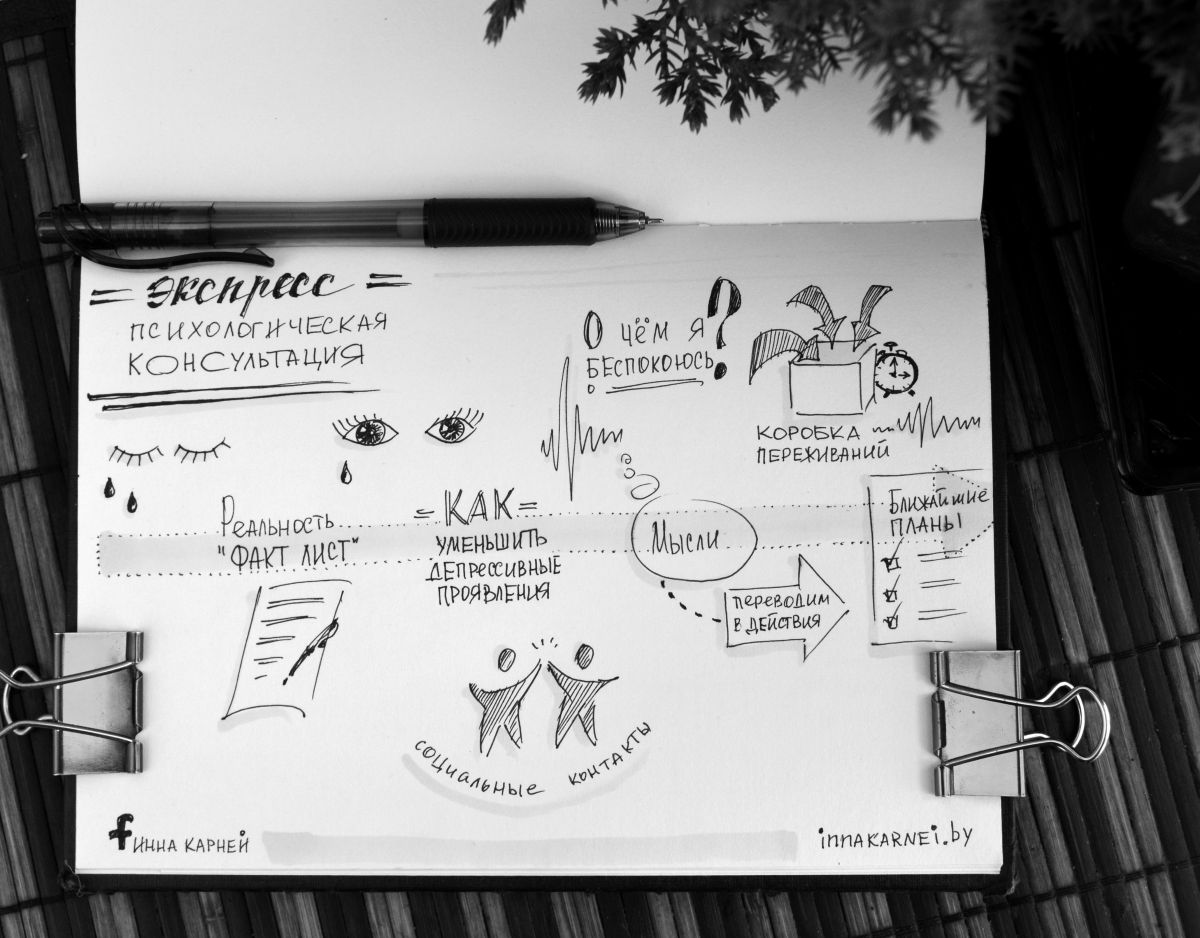 = экспресс =
ПСИХОЛОГИЧЕСКАЯ
КОНСУЛЬТАЦИЯ
О ЧЁМ Я
БЕСПОКОЮСЬ?
КОРОБКА
ПЕРЕЖИВАНИЙ
РЕАЛЬНОСТЬ
"ФАКТ ЛИСТ"
= КАК =
УМЕНЬШИТЬ
ДЕПРЕССИВНЫЕ
ПРОЯВЛЕНИЯ
Мысли
ПЕРЕВОДИМ
В ДЕЙСТВИЯ
БЛИЖАЙШИЕ
ПЛАНЫ
социальные контакты
f ИННА КАРНЕЙ
innaKARNEi.by